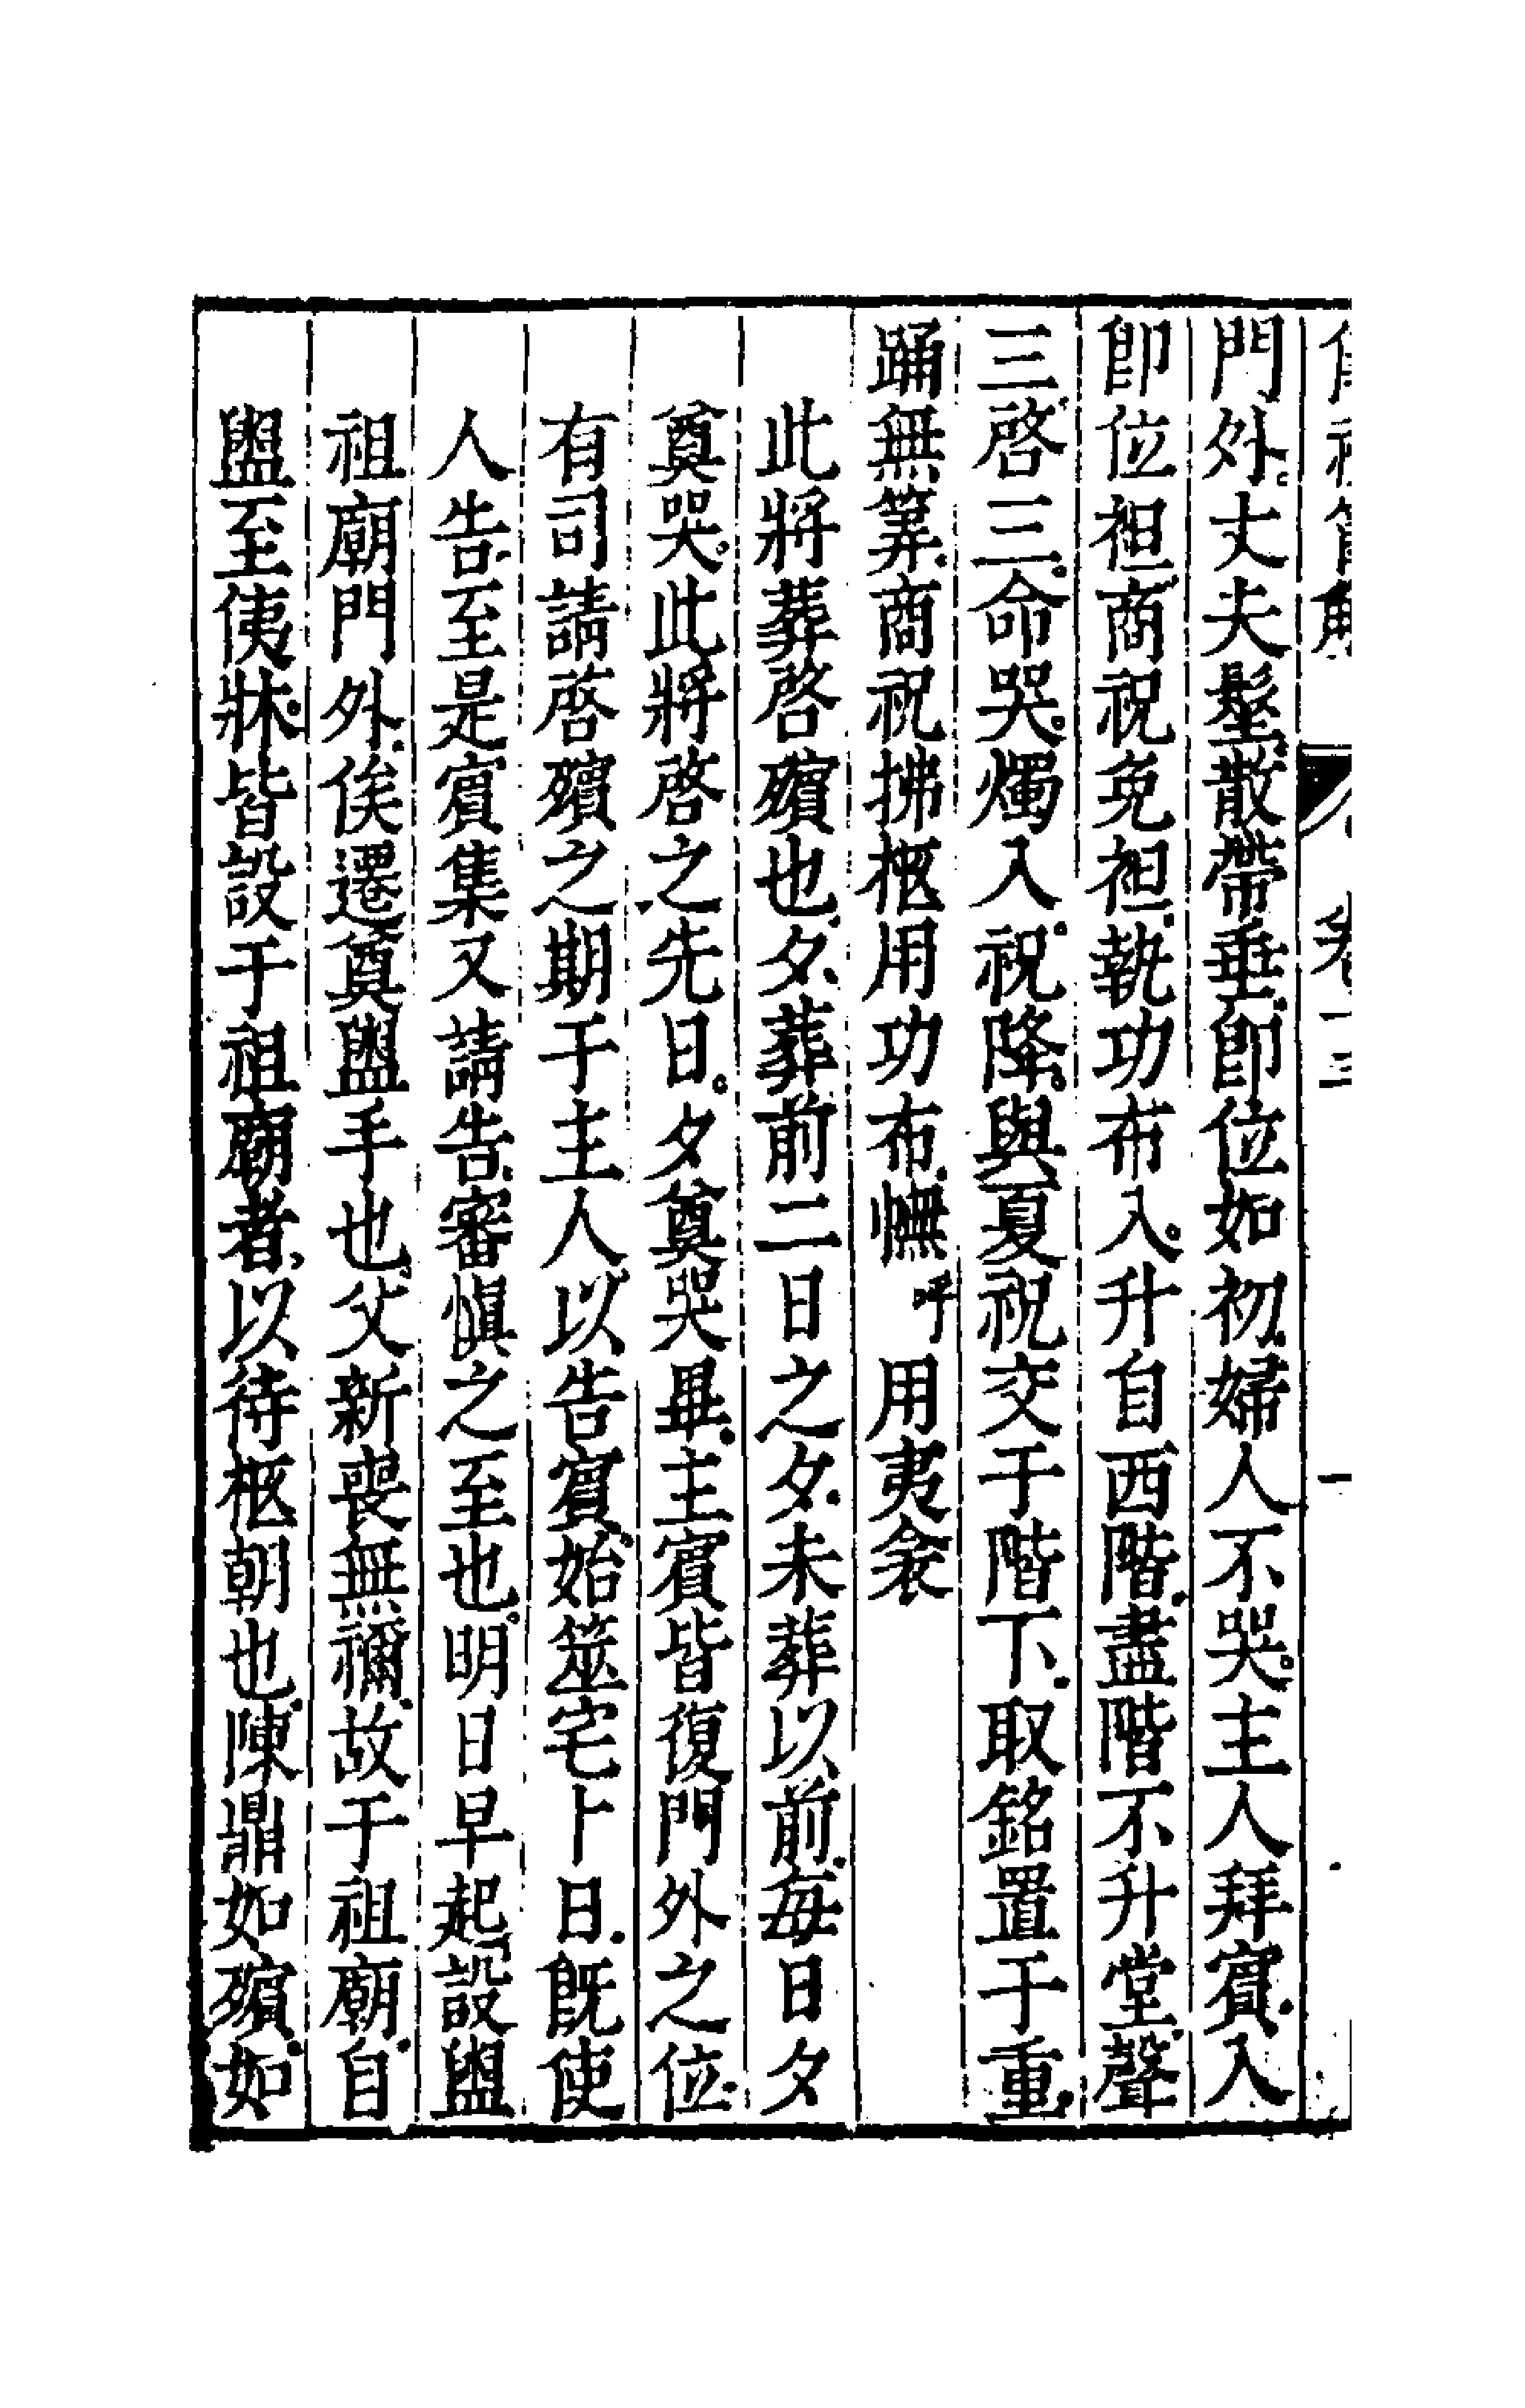 門外丈夫髽散帶垂卽位如初婦人不哭主人拜賓入
卽位袒商祝免袒執功布入升自西階盡階不升堂聲
三啓三命哭燭入祝降與夏祝交于階下取銘置于重
踊無筭商祝拂柩用功布幠呼用夷衾
此將葬啓殯也夕葬前二日之夕未葬以前每日夕
奠哭此將啓之先日夕奠哭畢主賓皆復門外之位
有司請啓殯之期于主人以告賓始筮宅卜日旣使
人告至是賓集又請告審愼之至也明日早起設盥
祖廟門外俟遷奠盥手也父新喪無禰故于祖廟自
盥至侇牀皆設于祖廟者以待柩朝也陳鼎如殯如